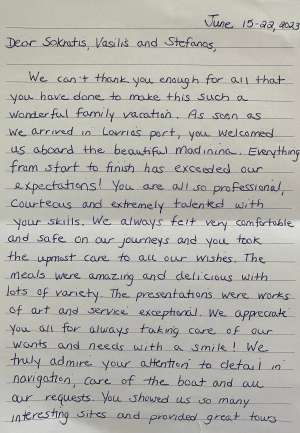 June 15-22, 2023
Dear Sokratis, Vasilis and Stefanos,
We can't thank you enough for all that
you have done to make this such a
wonderful family vacation. As soon as
we arrived in Lavrios port, you welcomed
us aboard the beautiful Madinina. Everything
from start to finish has exceeded our
expectations! You are all so professional,
courteous and extremely talented with
your skills. We always felt very comfortable
and safe on our journeys and you took
the upmost care to all our wishes. The
meals were amazing and delicious with
lots of variety. The presentations were works
of art and service exceptional. We appreciate
you all for always taking care of our
wants and needs with a smile! We
truly admire your attention to detail in
navigation, care of the boat and all
our requests. You showed us so many
interesting sites and provided great tours